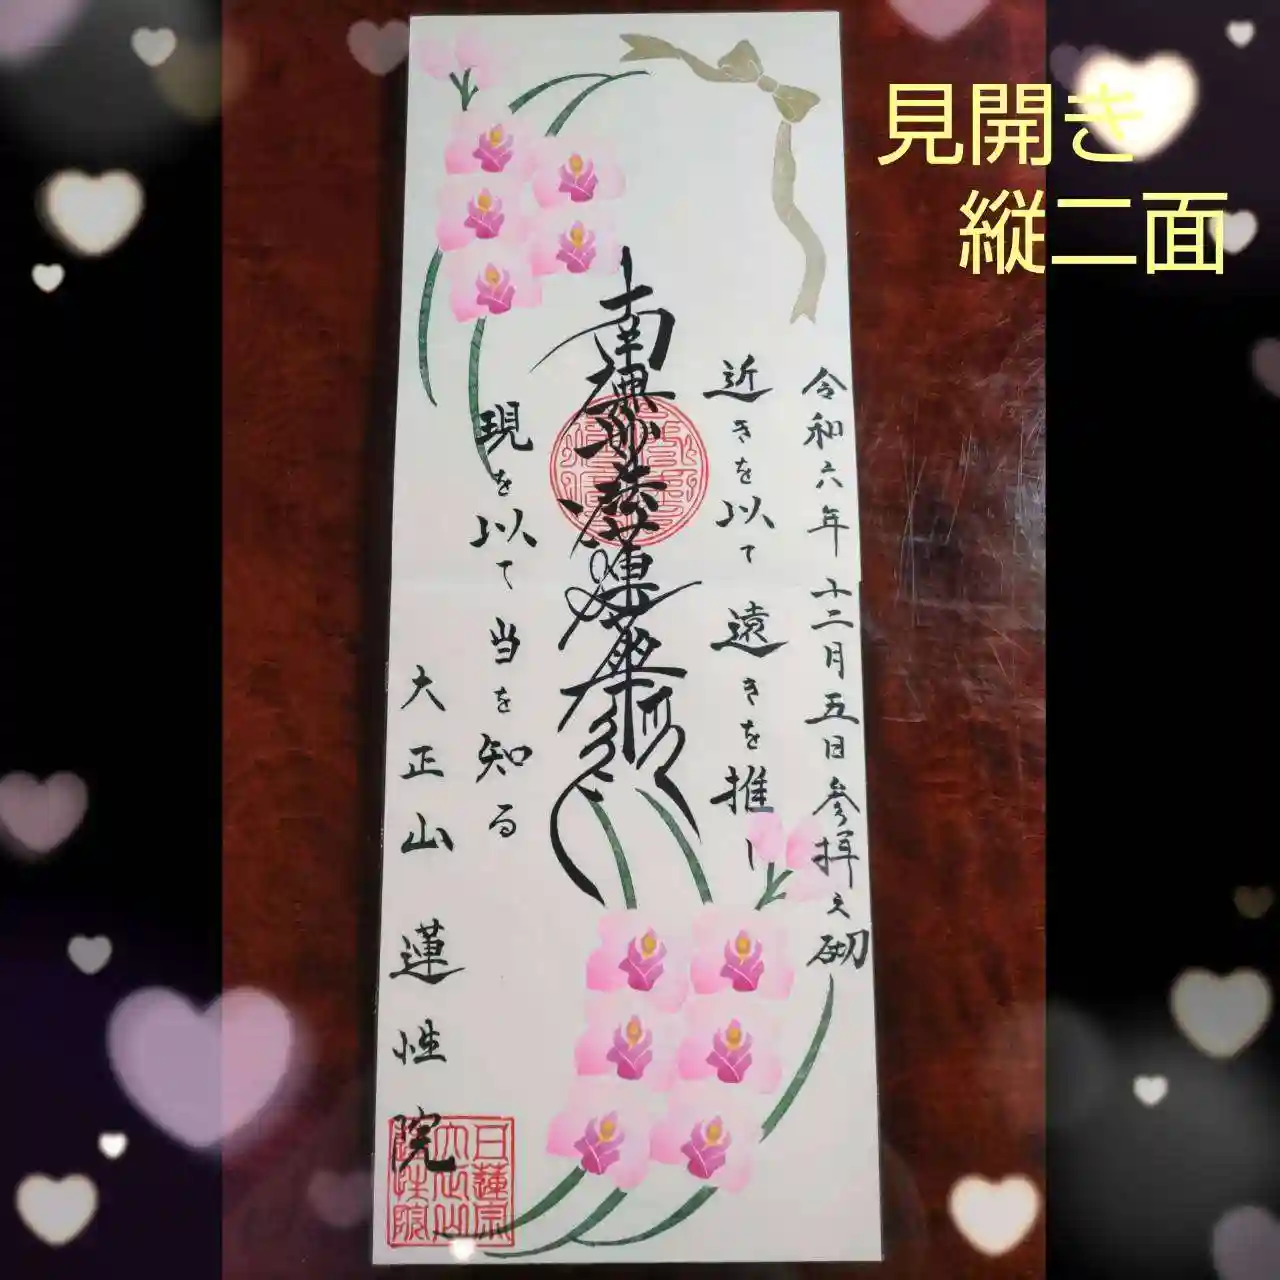 見開き
縦二面
令和六年十二月五日参拝之砌
近きを以て遠きを推し
南無妙法蓮華経
現を以て当を知る
大正山蓮性院
日蓮宗
大正山
蓮性院